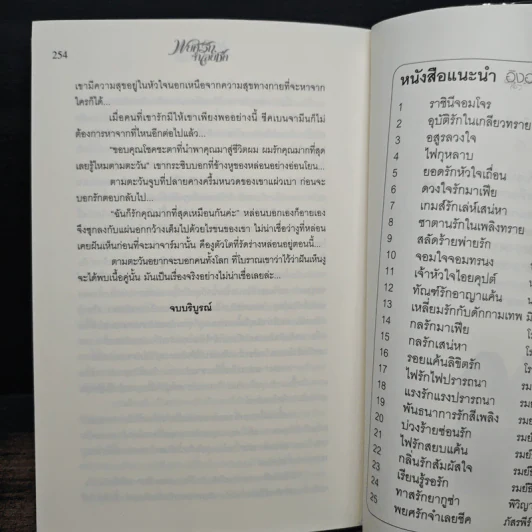 254
เขามีความสุขอยู่ในหัวใจนอกเหนือจากความสุขทางกายที่จะหาจาก
ใครก็ได้...
เมื่อคนที่เขารักมีให้เขาเพียงพออย่างนี้ ชีคเบนจามีนก็ไม่
ต้องการหาจากที่ไหนอีกต่อไปแล้ว...
"ขอบคุณโชคชะตาที่นำพาคุณมาสู่ชีวิตผม ผมรักคุณมากที่สุด
เลยรู้ไหมตามตะวัน" เขากระซิบบอกที่ข้างหูของหล่อนอย่างอ่อนโยน...
ตามตะวันจูบที่ปลายคางครึ้มหนวดของเขาแผ่วเบา ก่อนจะ
บอกรักตอบกลับไป...
"ฉันก็รักคุณมากที่สุดเหมือนกันค่ะ" หล่อนบอกเองก็อายเอง
จึงซุกลงกับแผ่นอกกว้างเต็มไปด้วยไรขนของเขา ไม่น่าเชื่อว่างูที่หล่อน
เคยฝันเห็นก่อนที่จะมาจาร์มานั้น คืองูตัวโตที่รัดร่างหล่อนอยู่ตอนนี้...
ตามตะวันอยากจะบอกคนทั้งโลก ที่โบราณเขาว่าไว้ว่าฝันเห็นงู
จะได้พบเนื้อคู่นั้น มันเป็นเรื่องจริงอย่างไม่น่าเชื่อเลยล่ะ...
จบบริบูรณ์
หนังสือแนะนำ
1 ราชินีจอมโจร
2 อุบัติรักในเกลียวทราย
3 อสูรลวงใจ
4 ไฟกุหลาบ
5 ยอดรักหัวใจเถื่อน
6 ดวงใจรักมาเฟีย
7 เกมส์รักเล่ห์เสน่หา
8 ซาตานรักในเพลิงทราย
9 สลัดร้ายพ่ายรัก
10 จอมใจจอมทรนง
11 เจ้าหัวใจไอยคุปต์
12 ทัณฑ์รักอาญาแค้น
13 เหลี่ยมรักกับดักกามเทพ
14 กลรักมาเฟีย
15 กลรักเสน่หา
16 รอยแค้นลิขิตรัก
17 ไฟรักไฟปรารถนา
18 แรงรักแรงปรารถนา
19 พันธนาการรักสีเพลิง
20 บ่วงร้ายซ่อนรัก
21 ไฟรักสยบแค้น
22 กลิ่นรักสัมผัสใจ
23 เรียนรู้รอรัก
24 ทาสรักยากูซ่า
25 พยศรักจำเลยชีค